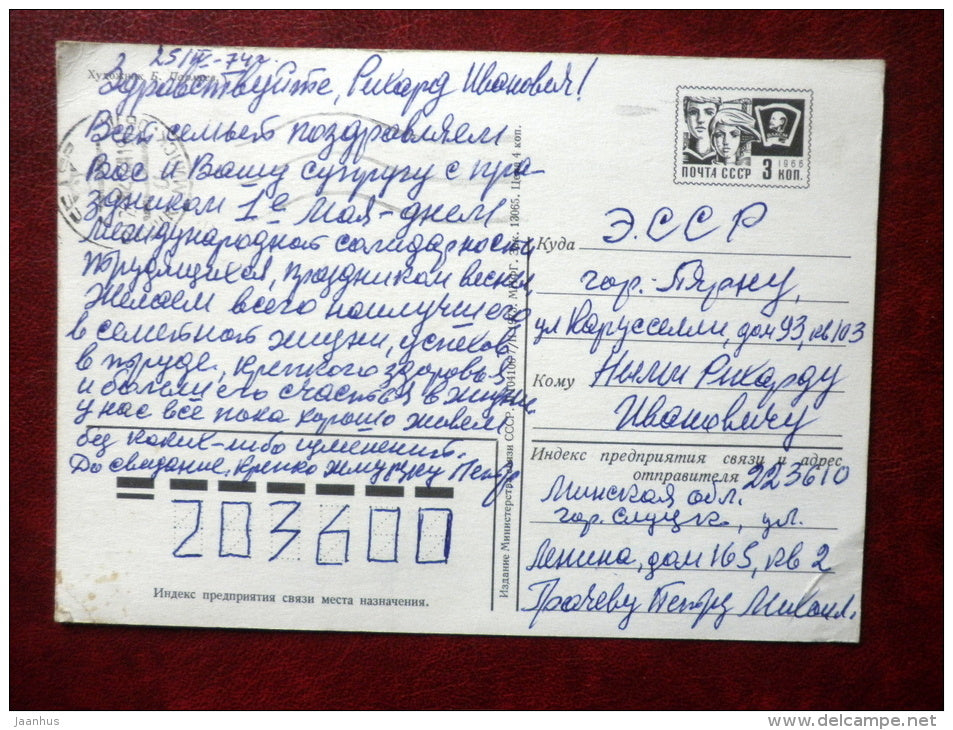 25/IV-74г.
Художник Б.
Здравствуйте, Рихард Иванович!
Всей семьей поздравляем
Вас и Вашу супругу с пра-
здником 1е Мая - днем
Международной солидарности
трудящихся, праздником весны.
Желаем всего наилучшего
в семейной жизни, успехов
в труде, крепкого здоровья
и большого счастья в жизни.
У нас все пока хорошо живем
без каких-либо изменений.
До свидание, крепко жму руку Петр
203600
Индекс предприятия связи места назначения.
Издание Министерства связи СССР. Зак. 13065. Цена 4 коп.
ПОЧТА СССР 3 КОП. 1966
ВЛКСМ
Куда Э.ССР
гор. Пярну,
ул Карусселли, дом 93, кв 103
Кому Ниями Рихарду
Ивановичу
Индекс предприятия связи и адрес
отправителя 223610
Минская обл.
гор. Слуцк, ул.
Ленина, дом 165, кв 2
Грачеву Петру Михаил.
Jaanhus
www.delcampe.net